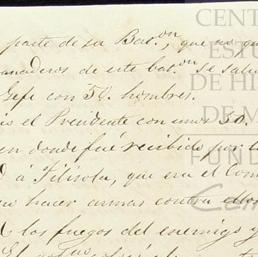 parte de su Bat.on, que no qu
anaderos de este bat.on se salv
Gefe con 54. hombres.
el Presidente con unos 50.
en donde fué recibido por l
á Filisola, que era el Com
hacer armas contra ellos
los fuegos del enemigo y
CENT
ESTU
DE HI
DE M
FUND